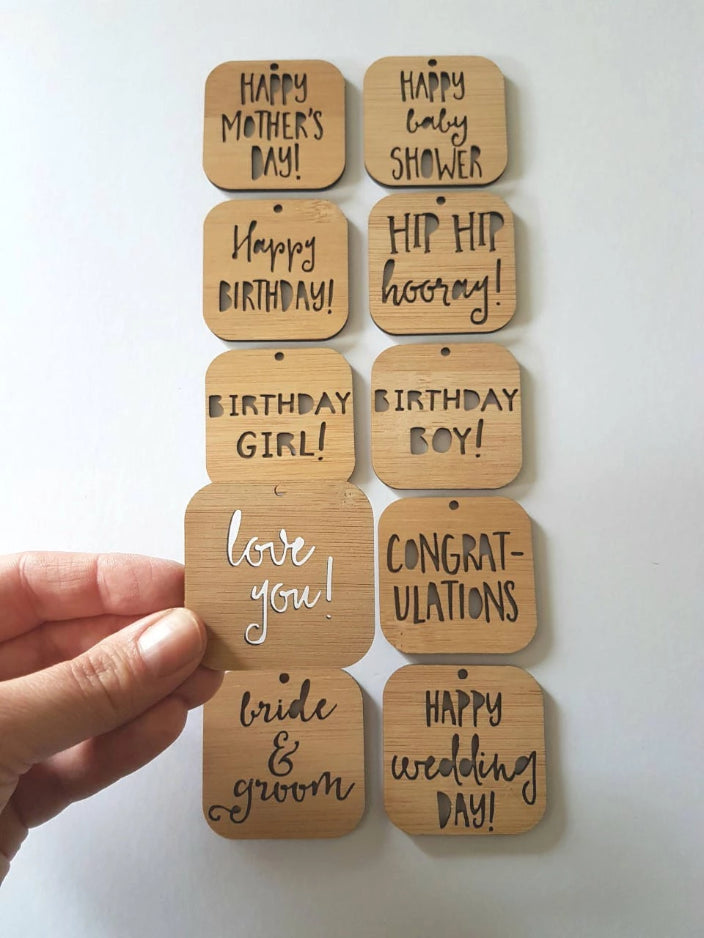 HAPPY
MOTHER'S
DAY!
HAPPY
baby
SHOWER
Happy
BIRTHDAY!
HIP HIP
hooray!
BIRTHDAY
GIRL!
BIRTHDAY
BOY!
love
you!
CONGRAT-
ULATIONS
bride
&
groom
HAPPY
wedding
DAY!